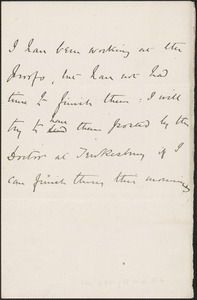 I have been working at the
Proofs, but have not had
time to finish them: I will
try to have them posted by the
Doctor at Tewkesbury if I
can finish them this morning